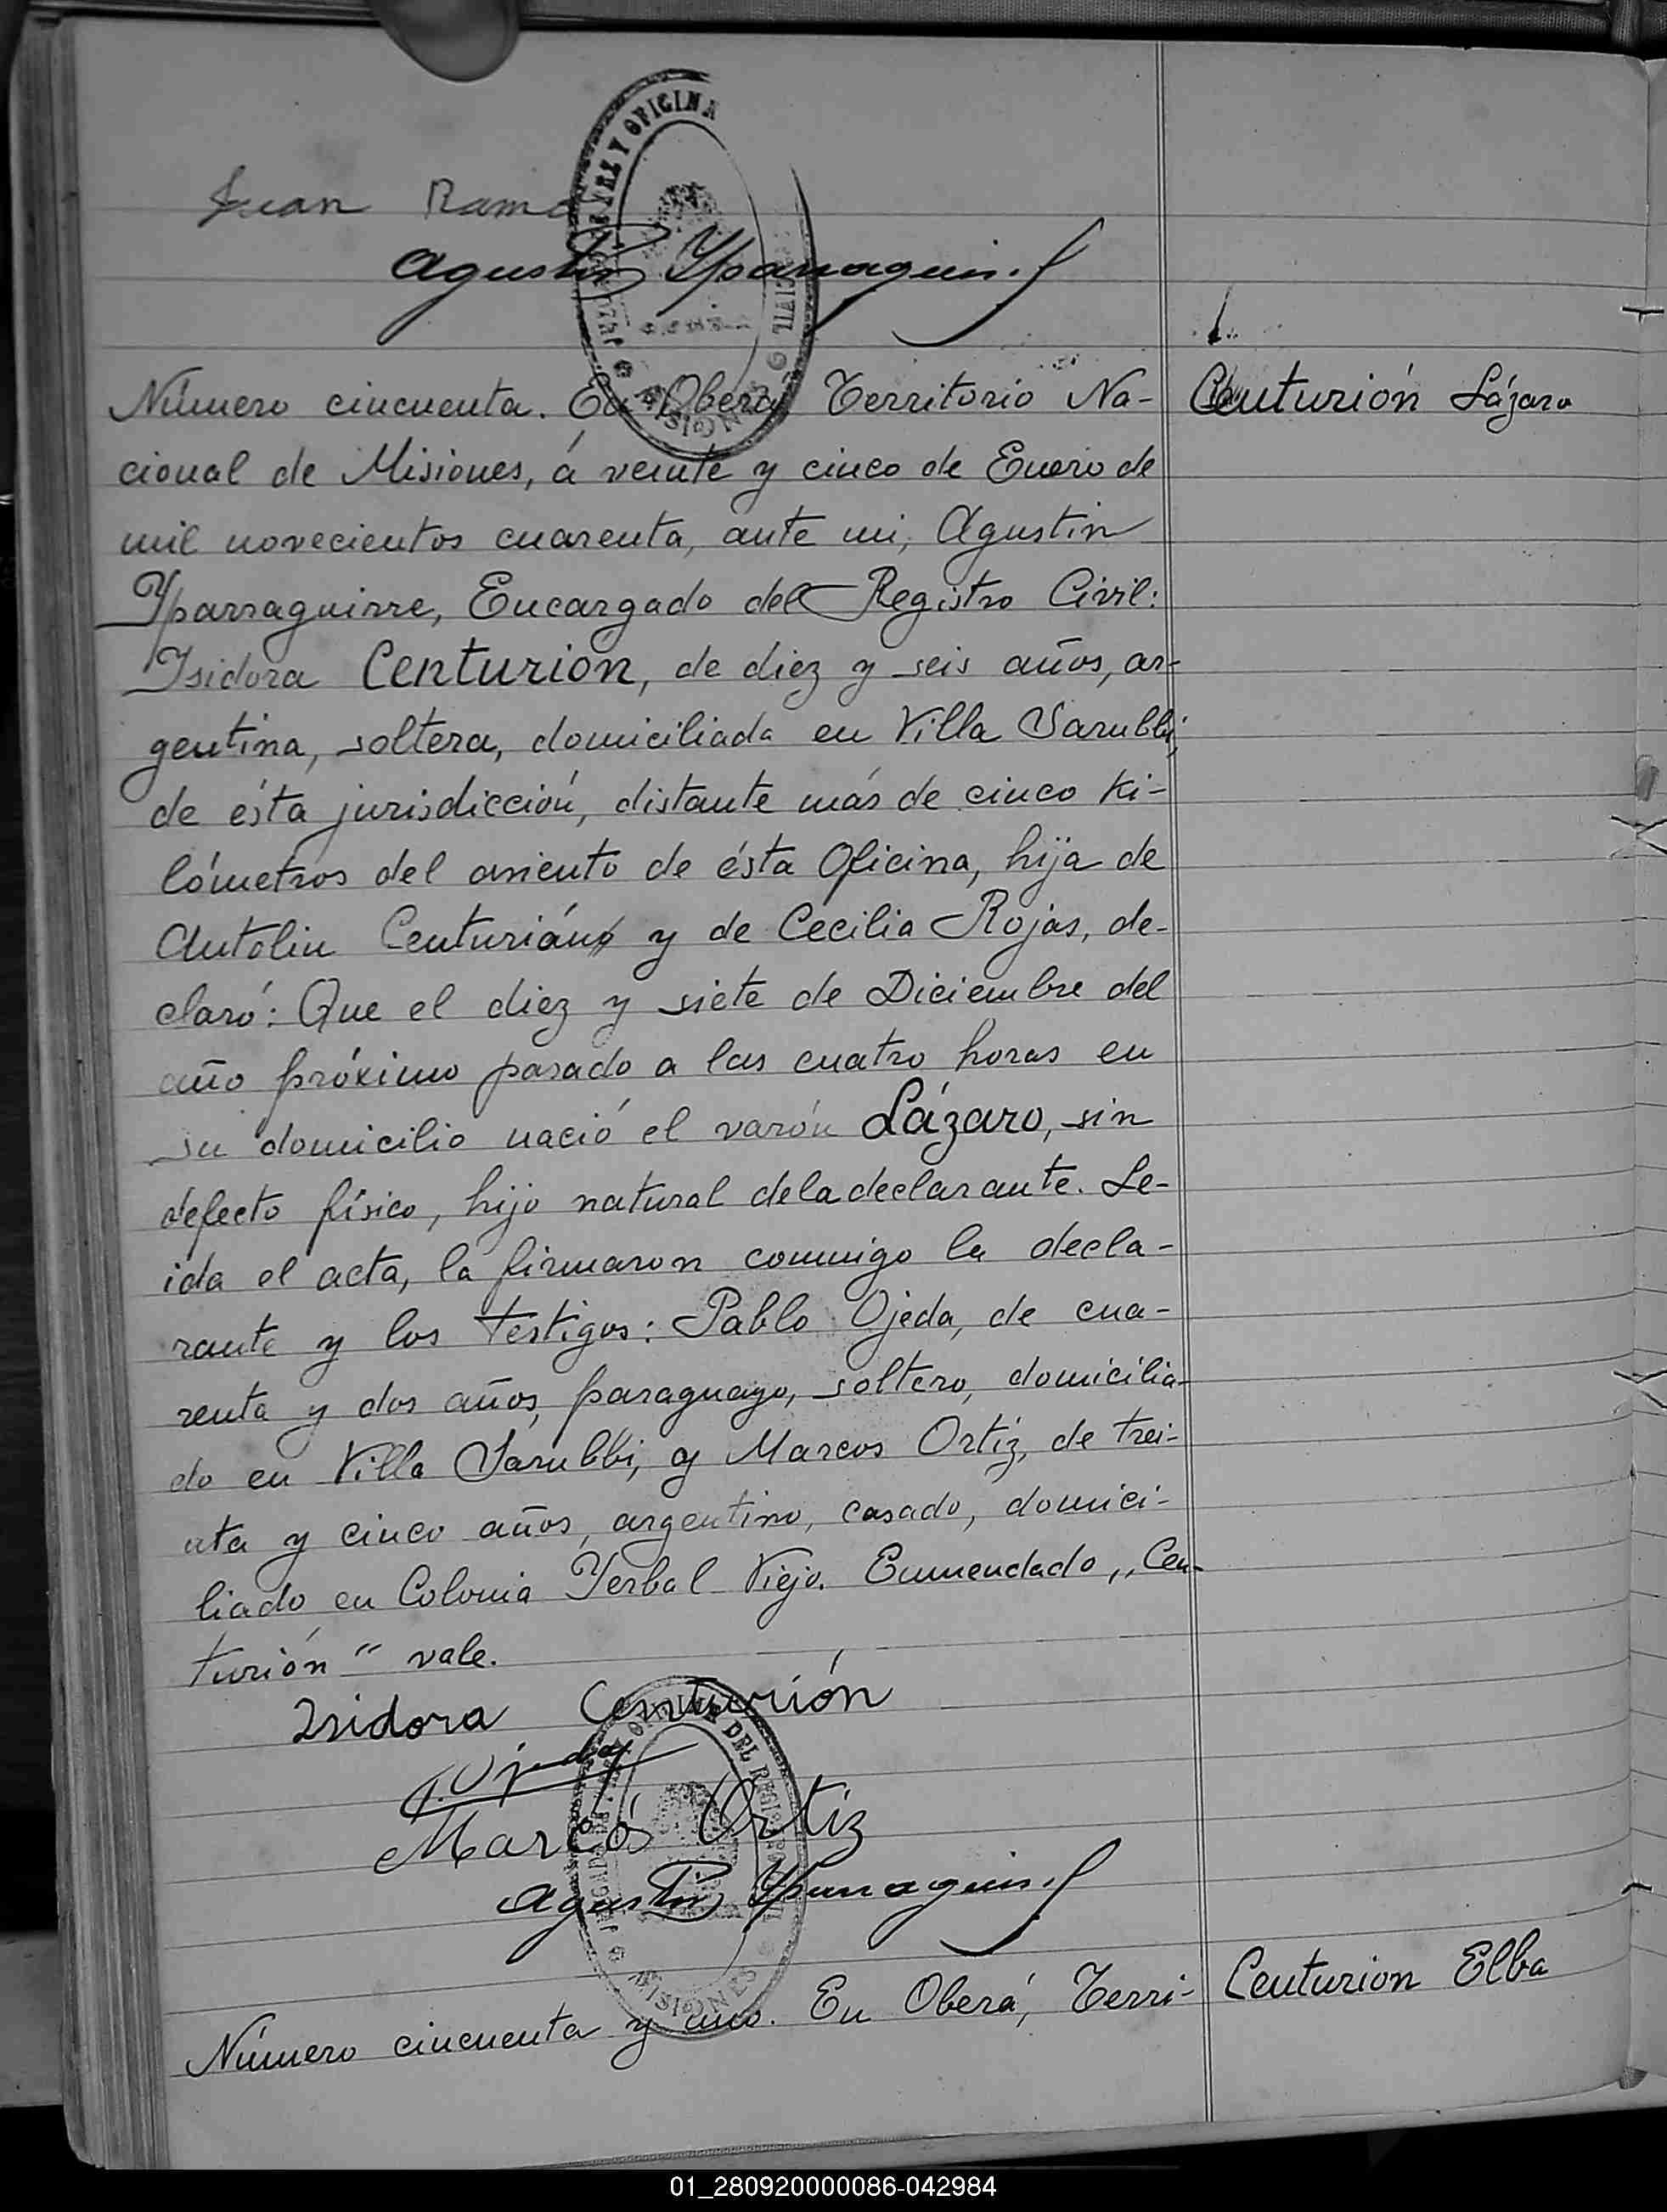 Juan Ramo
Agustin Yparraguirre
Número cincuenta. En Oberá, Territorio Na-
Centurión Lázaro
cional de Misiones, á veinte y cinco de Enero de
mil novecientos cuarenta, ante mi, Agustin
Yparraguirre, Encargado del Registro Civil:
Isidora Centurión, de diez y seis años, ar-
gentina, soltera, domiciliada en Villa Sarubbi,
de ésta jurisdicción, distante más de cinco ki-
lómetros del asiento de ésta Oficina, hija de
Autolin Centurión y de Cecilia Rojas, de-
claró: Que el diez y siete de Diciembre del
año próximo pasado a las cuatro horas en
su domicilio nació el varón Lázaro, sin
defecto físico, hijo natural de la declarante. Le-
ida el acta, la firmaron conmigo la decla-
rante y los testigos: Pablo Ojeda, de cua-
renta y dos años, paraguayo, soltero, domicilia-
do en Villa Sarubbi, y Marcos Ortiz, de trei-
nta y cinco años, argentino, casado, domici-
liado en Colonia Yerbal Viejo. Enmendado „Cen-
turión" vale.
Isidora Centurión
P. Ojeda
Marcos Ortiz
Agustin Yparraguirre
Número cincuenta y uno. En Oberá, Terri-
Centurion Elba
01_280920000086-042984